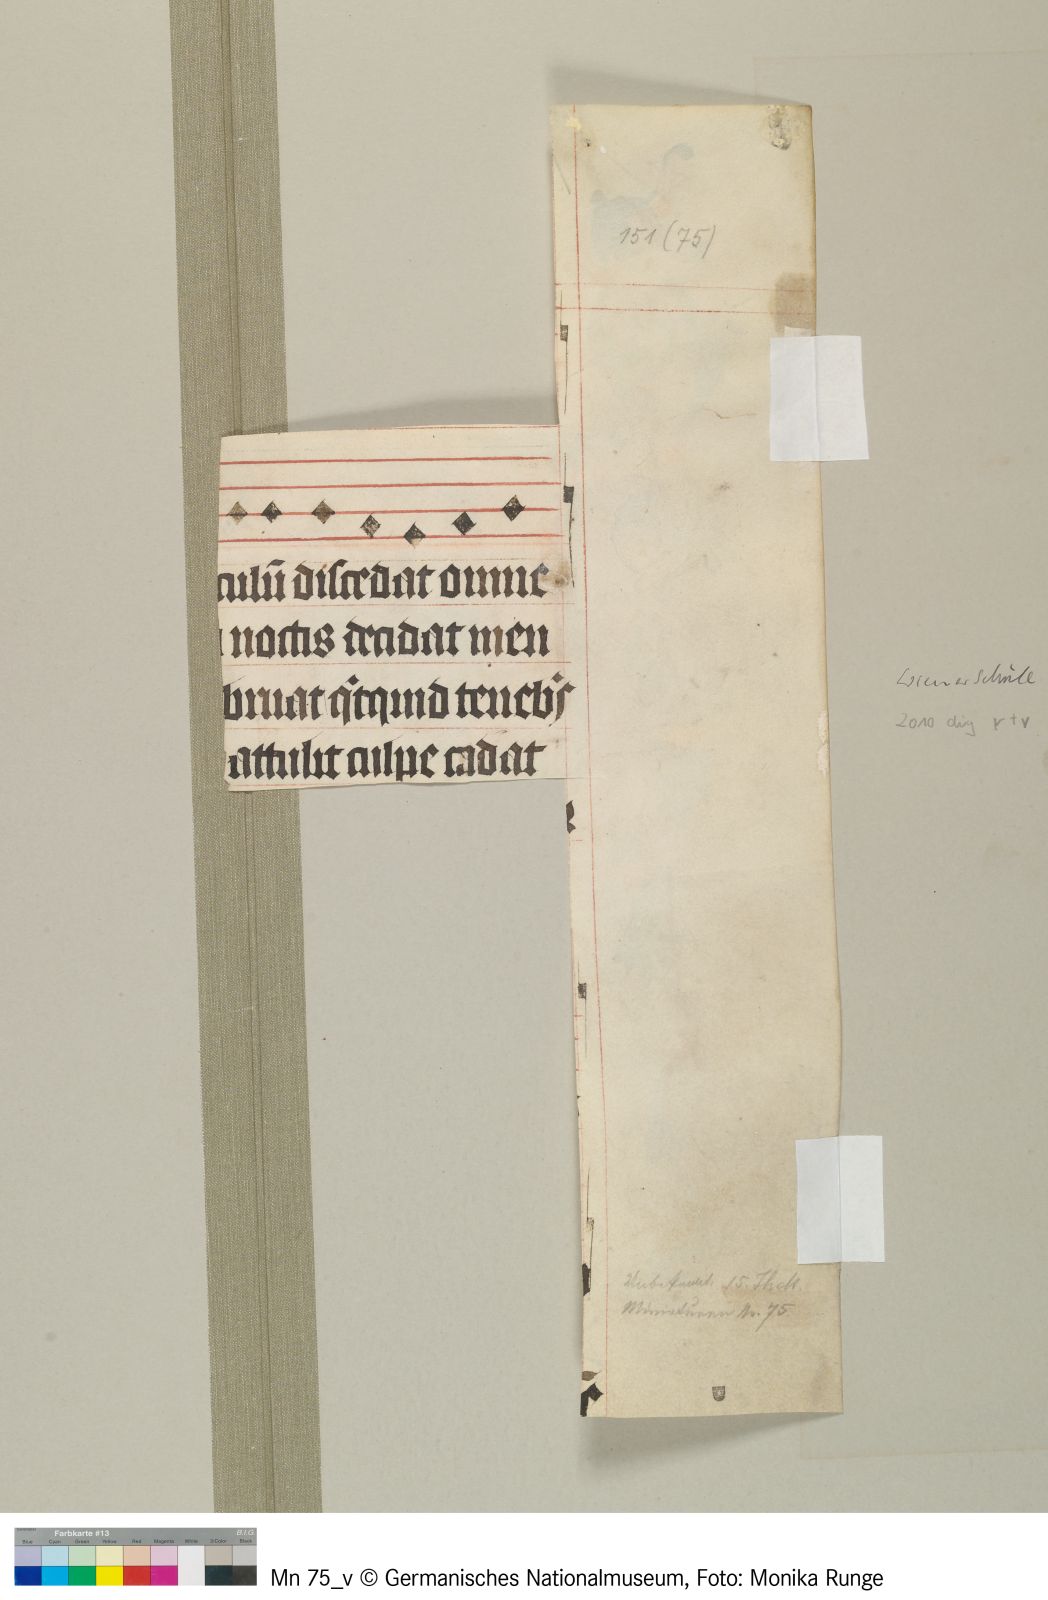 151 (75)
culū discedat omne
noctis decidat men
bruat q̇tquid teneb̾s
attulit culpe cadat
Wiener Schule
2010 dig r+v
15. Jhdt.
Miniaturen Nr. 75
Farbkarte #13
B.I.G.
Blue Cyan Green Yellow Red Magenta White 3/Color Black
Mn 75_v © Germanisches Nationalmuseum, Foto: Monika Runge